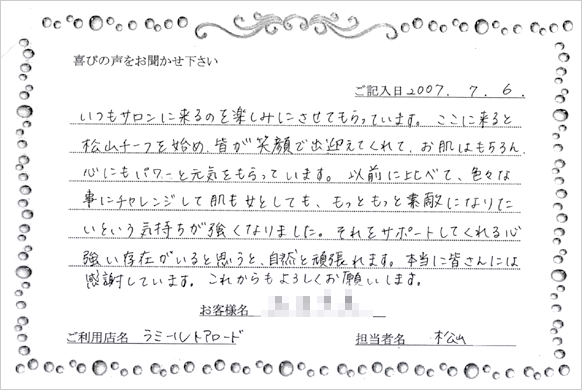 喜びの声をお聞かせ下さい
ご記入日 2007. 7. 6.
いつもサロンに来るのを楽しみにさせてもらっています。ここに来ると
松山チーフを始め、皆が笑顔で出迎えてくれて、お肌はもちろん
心にもパワーと元気をもらっています。以前に比べて、色々な
事にチャレンジして肌も女としても、もっともっと素敵になりた
いという気持ちが強くなりました。それをサポートしてくれる心
強い存在がいると思うと、自然と頑張れます。本当に皆さんには
感謝しています。これからもよろしくお願いします。
お客様名
ご利用店名 ラミールトアロード 担当者名 松山